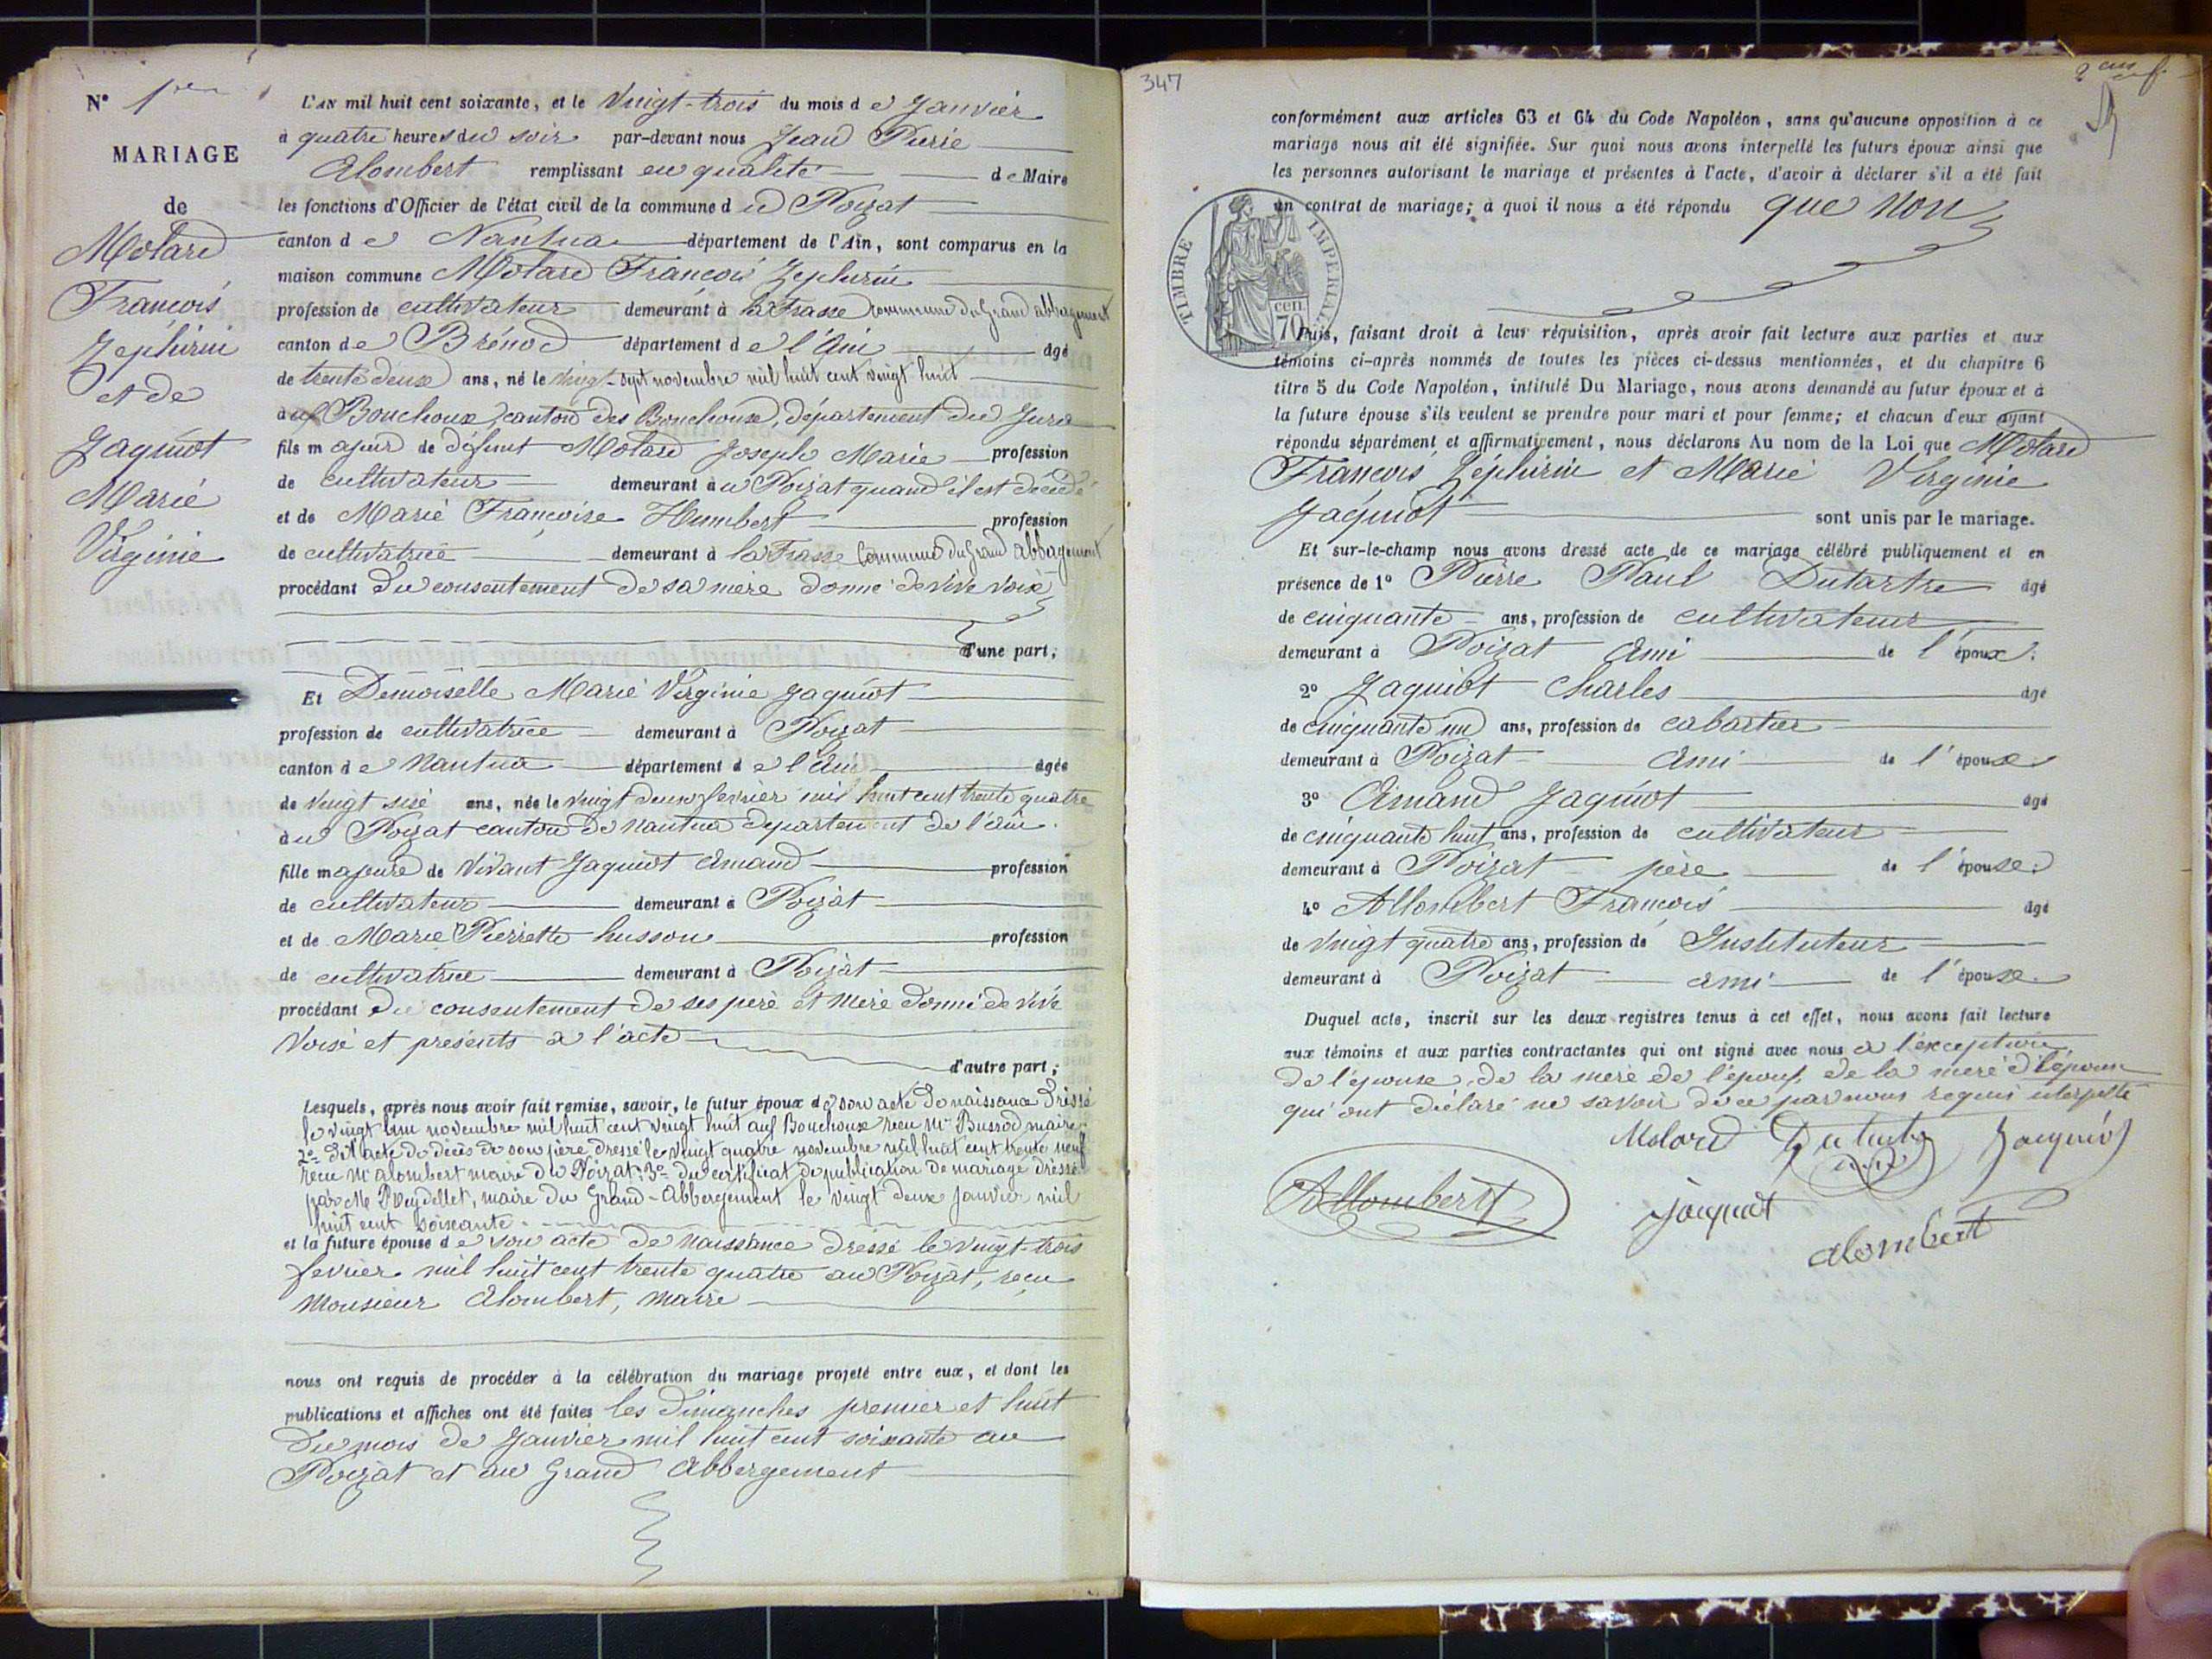 N° 1er
MARIAGE
de
Molard
François
Zéphirin
et de
Jaquiot
Marie
Virginie
L'AN mil huit cent soixante, et le vingt-trois du mois de Janvier
à quatre heures du soir par-devant nous Jean Pierre
Alombert remplissant en qualité de Maire
les fonctions d'Officier de l'état civil de la commune du Poizat
canton de Nantua département de l'Ain, sont comparus en la
maison commune Molard François Zephirin
profession de cultivateur demeurant à la Frasse commune du Grand abbergement
canton de Brénod département de l'Ain âgé
de trente deux ans, né le vingt-sept novembre mil huit cent vingt huit
aux Bouchoux, canton des Bouchoux, département du Jura
fils majeur de défunt Molard Joseph Marie profession
de cultivateur demeurant au Poizat quand il est décédé
et de Marie Françoise Humbert profession
de cultivatrice demeurant à la Frasse Commune du Grand Abbergement
procédant du consentement de sa mère donné de vive voix
d'une part;
Et Demoiselle Marie Virginie Jaquiot
profession de cultivatrice demeurant à Poizat
canton de Nantua département de l'Ain âgée
de vingt sixe ans, née le vingt deux fevrier mil huit cent trente quatre
au Poizat canton de Nantua département de l'ain.
fille majeure de vivant Jaquiot Amand profession
de cultivateur demeurant à Poizat
et de Marie Pierrette husson profession
de cultivatrice demeurant à Poizat
procédant du consentement de ses père et mère donné de vive
voix et présents à l'acte
d'autre part;
Lesquels, après nous avoir fait remise, savoir, le futur époux de son acte de naissance dressé
le vingt novembre mil huit cent vingt huit aux Bouchoux reçu Mr Bussod maire
2° dit acte de décès de son père dressé le vingt quatre novembre mil huit cent trente neuf
reçu Mr alombert maire du Poizat; 3° du certificat de publication de mariage dressé
par Me maire du Grand-Abbergement le vingt deux janvier mil
huit cent soixante.
et la future épouse de son acte de naissance dressé le vingt-trois
fevrier mil huit cent trente quatre au Poizat, reçu
Monsieur Alombert, maire
nous ont requis de procéder à la célébration du mariage projeté entre eux, et dont les
publications et affiches ont été faites les dimanches premier et huit
du mois de Janvier mil huit cent soixante au
Poizat et au Grand Abbergement
347
conformément aux articles 63 et 64 du Code Napoléon, sans qu'aucune opposition à ce
mariage nous ait été signifiée. Sur quoi nous avons interpellé les futurs époux ainsi que
les personnes autorisant le mariage et présentes à l'acte, d'avoir à déclarer s'il a été fait
un contrat de mariage; à quoi il nous a été répondu que Non
TIMBRE IMPERIAL
70 cen
Puis, faisant droit à leur réquisition, après avoir fait lecture aux parties et aux
témoins ci-après nommés de toutes les pièces ci-dessus mentionnées, et du chapitre 6
titre 5 du Code Napoléon, intitulé Du Mariage, nous avons demandé au futur époux et à
la future épouse s'ils veulent se prendre pour mari et pour femme; et chacun d'eux ayant
répondu séparément et affirmativement, nous déclarons Au nom de la Loi que Molard
François Zéphirin et Marie Virginie
Jaquiot sont unis par le mariage.
Et sur-le-champ nous avons dressé acte de ce mariage célébré publiquement et en
présence de 1° Pierre Paul Dutartre âgé
de cinquante ans, profession de cultivateur
demeurant à Poizat Ami de l'époux:
2° Jaquiot Charles âgé
de cinquante un ans, profession de cabartier
demeurant à Poizat Ami de l'épouse
3° Amand Jaquiot âgé
de cinquante huit ans, profession de cultivateur
demeurant à Poizat père de l'épouse:
4° Allombert François âgé
de vingt quatre ans, profession de Instituteur
demeurant à Poizat ami de l'épouse.
Duquel acte, inscrit sur les deux registres tenus à cet effet, nous avons fait lecture
aux témoins et aux parties contractantes qui ont signé avec nous à l'exception
de l'épouse, de la mère de l'épouse, de la mère de l'époux
qui ont déclaré ne savoir de ce par nous requis interpellé
Molard Dutartre Jaquiot
Allombert Jaquiot
alombert